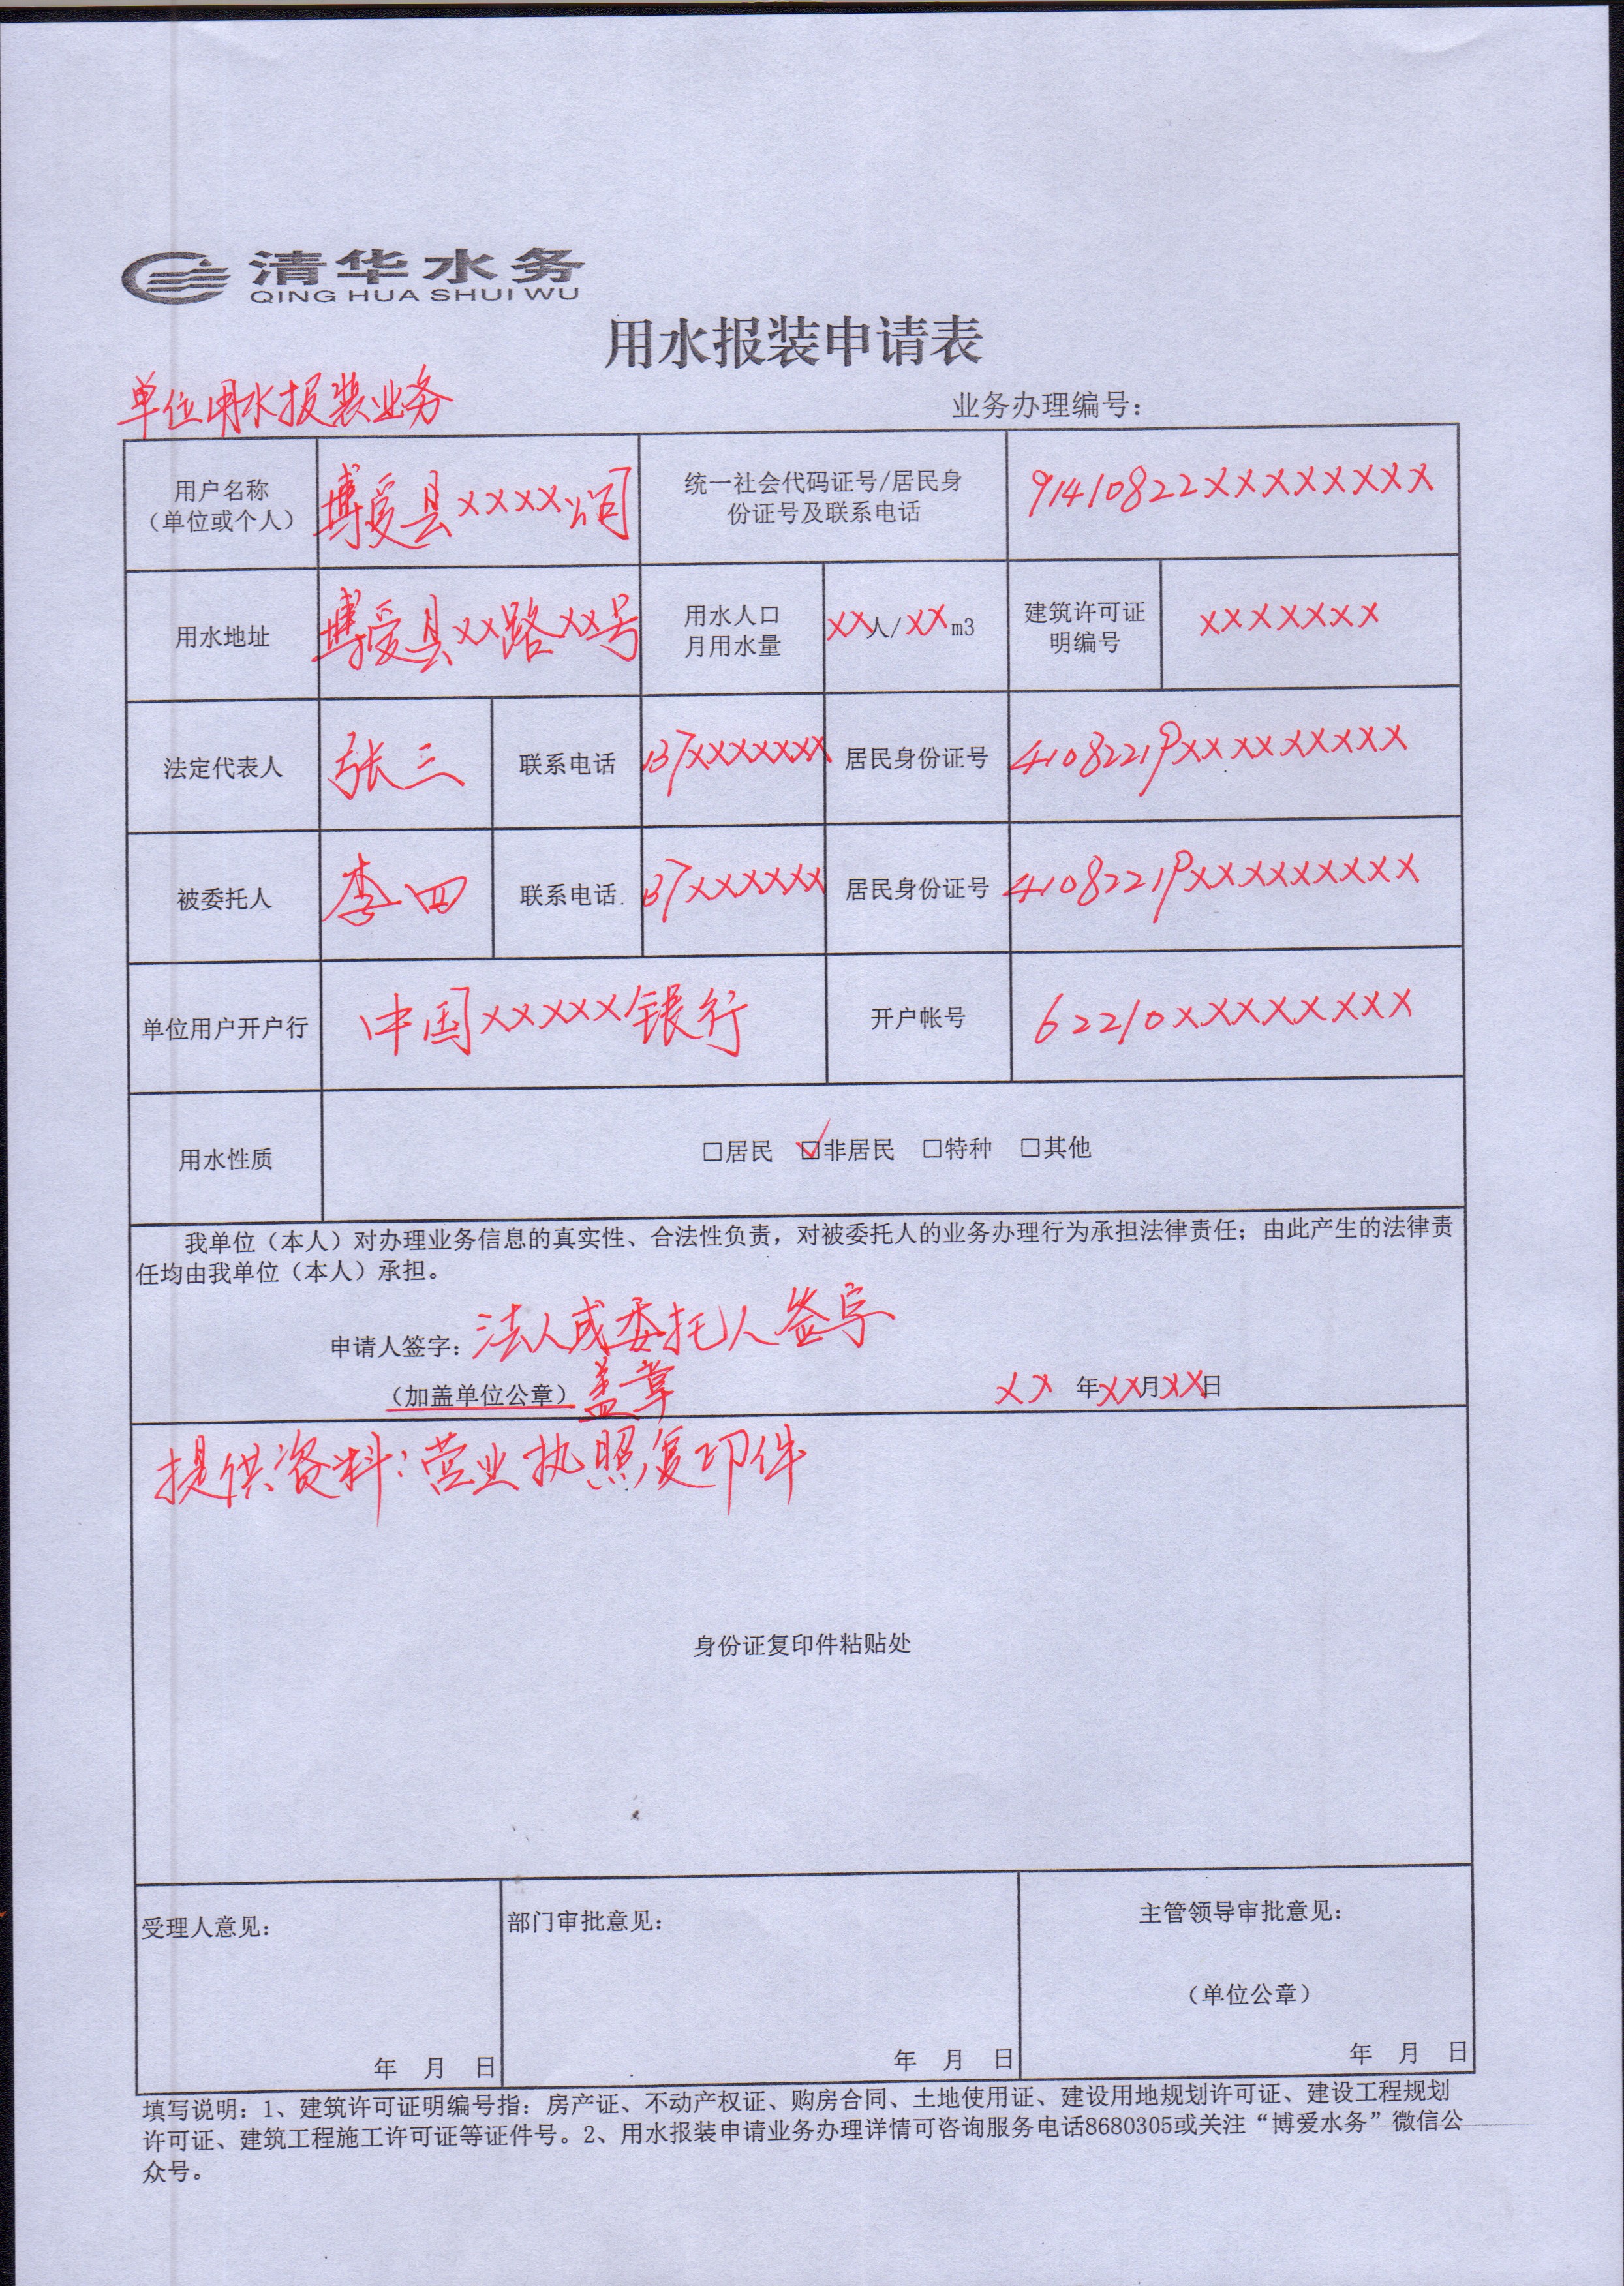 清华水务
QING HUA SHUI WU
用水报装申请表
单位用水报装业务
业务办理编号：
用户名称
（单位或个人）
博爱县××××公司
统一社会代码证号/居民身
份证号及联系电话
91410822××××××××
用水地址
博爱县××路××号
用水人口
月用水量
××人/××m3
建筑许可证
明编号
×××××××
法定代表人
张三
联系电话
137×××××××
居民身份证号
41082219×××××××××
被委托人
李四
联系电话
137××××××
居民身份证号
41082219×××××××××
单位用户开户行
中国×××××银行
开户帐号
62210××××××××
用水性质
□居民 ☑非居民 □特种 □其他
我单位（本人）对办理业务信息的真实性、合法性负责，对被委托人的业务办理行为承担法律责任；由此产生的法律责
任均由我单位（本人）承担。
申请人签字：法人或委托人签字
（加盖单位公章）盖章
×× 年××月××日
提供资料：营业执照复印件
身份证复印件粘贴处
受理人意见：
年 月 日
部门审批意见：
年 月 日
主管领导审批意见：
（单位公章）
年 月 日
填写说明：1、建筑许可证明编号指：房产证、不动产权证、购房合同、土地使用证、建设用地规划许可证、建设工程规划
许可证、建筑工程施工许可证等证件号。2、用水报装申请业务办理详情可咨询服务电话8680305或关注“博爱水务”微信公
众号。